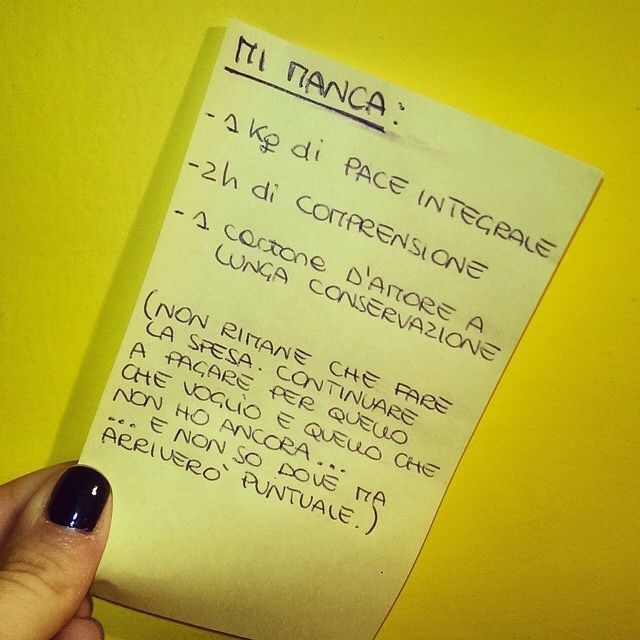 MI MANCA:
- 1 Kg di PACE INTEGRALE
- 2h di COMPRENSIONE
- 1 cartone D'AMORE A
LUNGA CONSERVAZIONE
(NON RIMANE CHE FARE
LA SPESA. CONTINUARE
A PAGARE PER QUELLO
CHE VOGLIO E QUELLO CHE
NON HO ANCORA...
... E NON SO DOVE MA
ARRIVERO' PUNTUALE.)